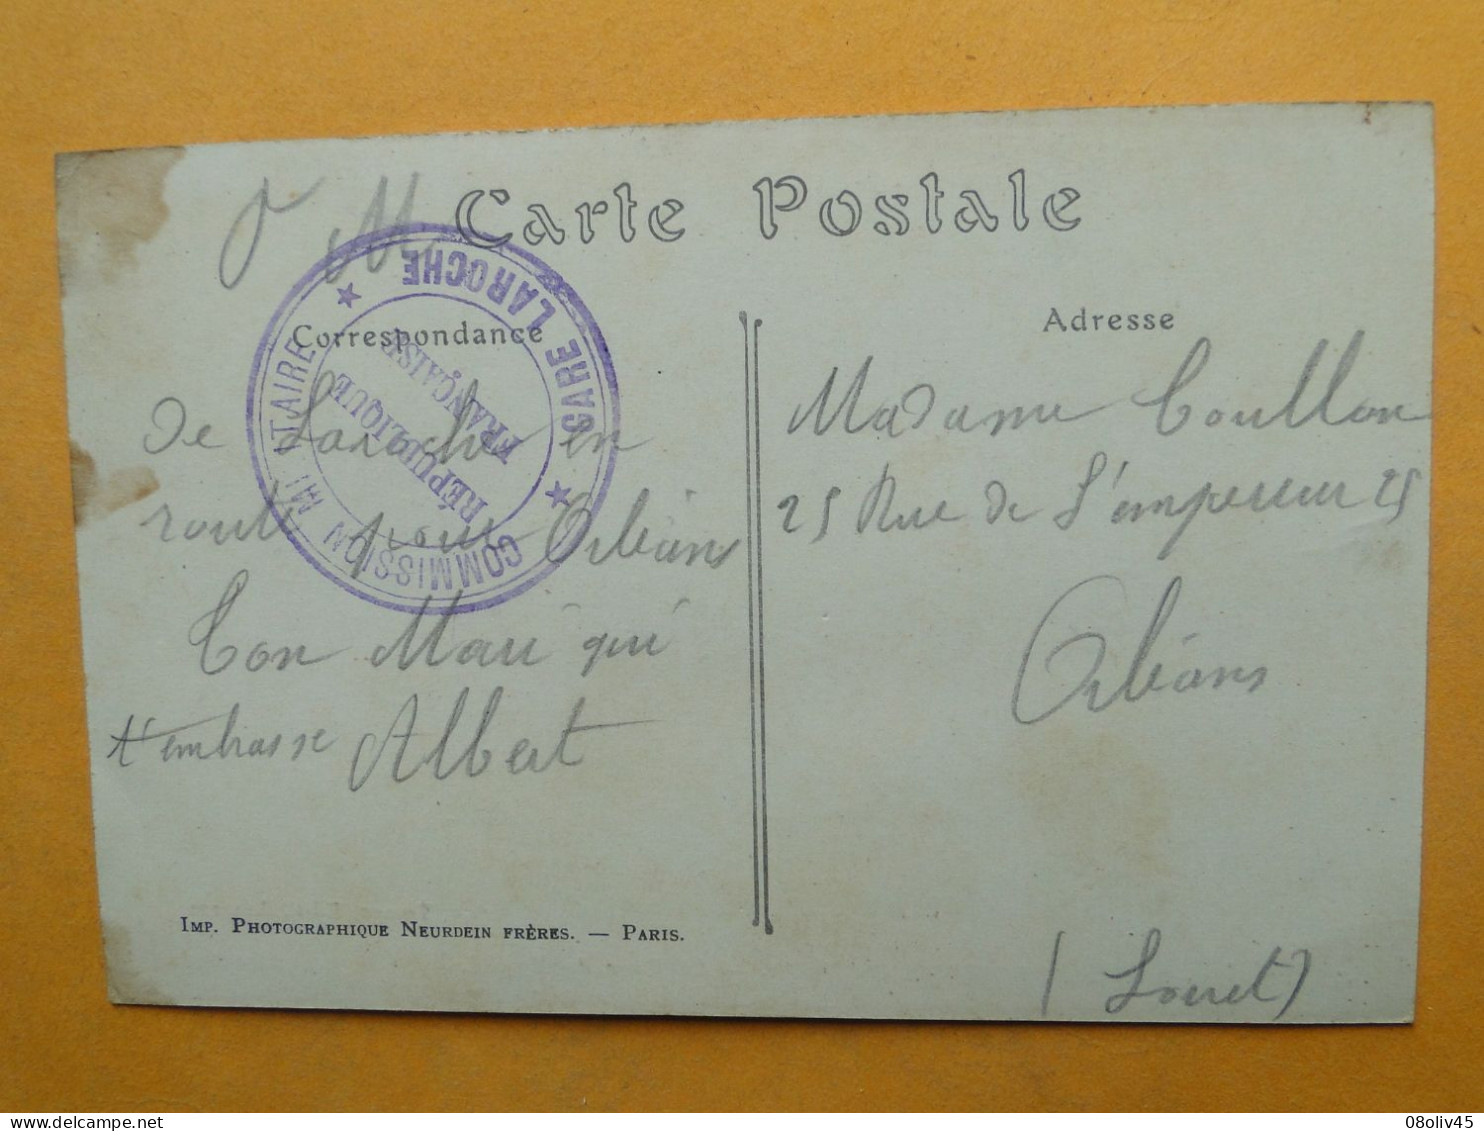 Carte Postale
F M
Correspondance
COMMISSION MILITAIRE ★ GARE LAROCHE ★
RÉPUBLIQUE
FRANÇAISE
de Laroche en
route pour Orléans
Ton Mari qui
t'embrasse Albert
IMP. PHOTOGRAPHIQUE NEURDEIN FRÈRES. — PARIS.
Adresse
Madame Coullon
25 Rue de L'empereur 25
Orléans
(Loiret)
delcampe.net
08oliv45